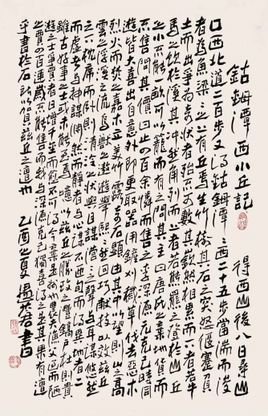 鈷鉧潭西小丘記 得西山後八日尋山
口西北道二百步又得鈷鉧潭〻西二十五步當湍而浚
者為魚梁〻之上有丘焉生竹樹其石之突怒偃蹇負
土而出爭為奇狀者殆不可數其嶔然相累而下者若牛
馬之飲於溪其衝然角列而上者若熊羆之登於山丘
之小不能一畝可以籠而有之問其主曰唐氏之棄地貨而
不售問其價曰止四百余憐而售之李深源元克己時同
遊皆大喜出自意外即更取器用鏟刈穢草伐去惡木
烈火而焚之嘉木立美竹露奇石顯由其中以望則山之高
雲之浮溪之流鳥獸之遨遊舉熙〻然迴巧獻技以效茲丘
之下枕席而臥則清泠之狀與目謀瀯〻之聲與耳謀悠然
而虛者與神謀淵然而靜者與心謀不匝旬而得異地者二
雖古好事之士或未能至焉噫以茲丘之勝致之灃鎬鄠杜則貴
遊之士爭買者日增千金而愈不可得今棄是州也農夫漁父過而陋
之賈四百連歲不能售而我與深源克己獨喜得之是其果有遭
乎書於石所以賀茲丘之遭也 乙酉之夏 書